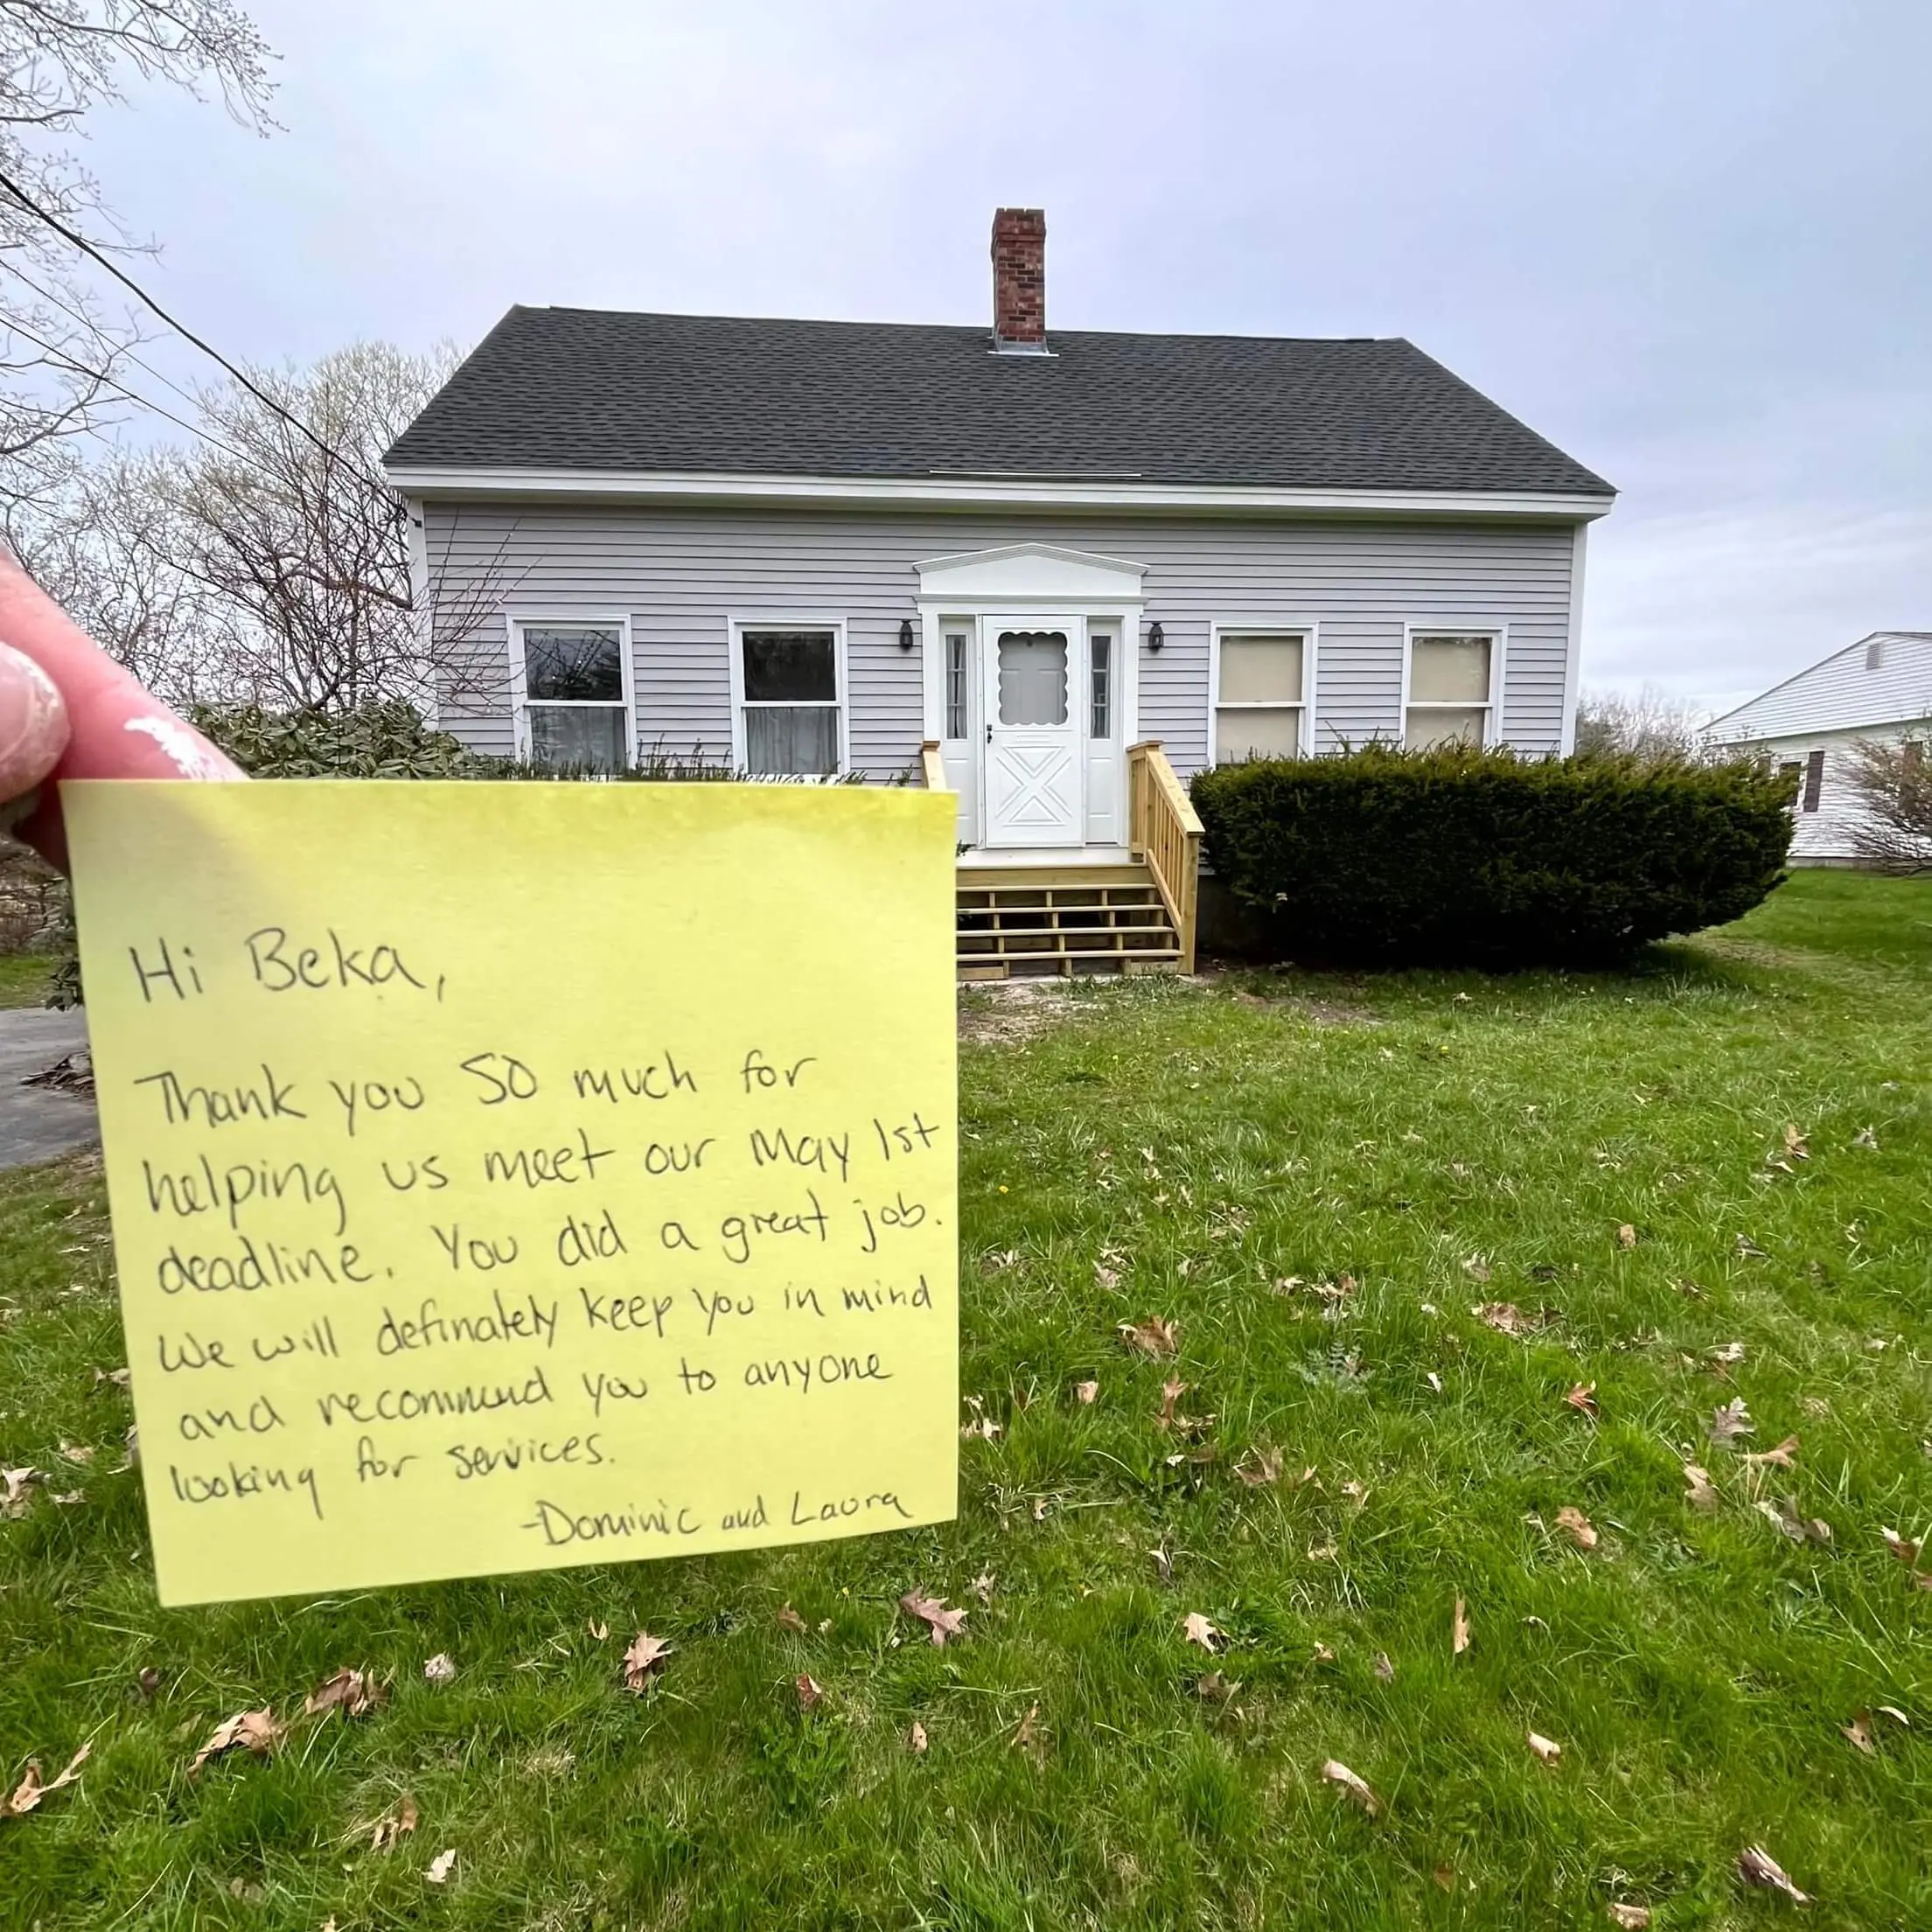 Hi Beka,
Thank you SO much for
helping us meet our May 1st
deadline. You did a great job.
We will definately keep you in mind
and recommend you to anyone
looking for services.
-Dominic and Laura